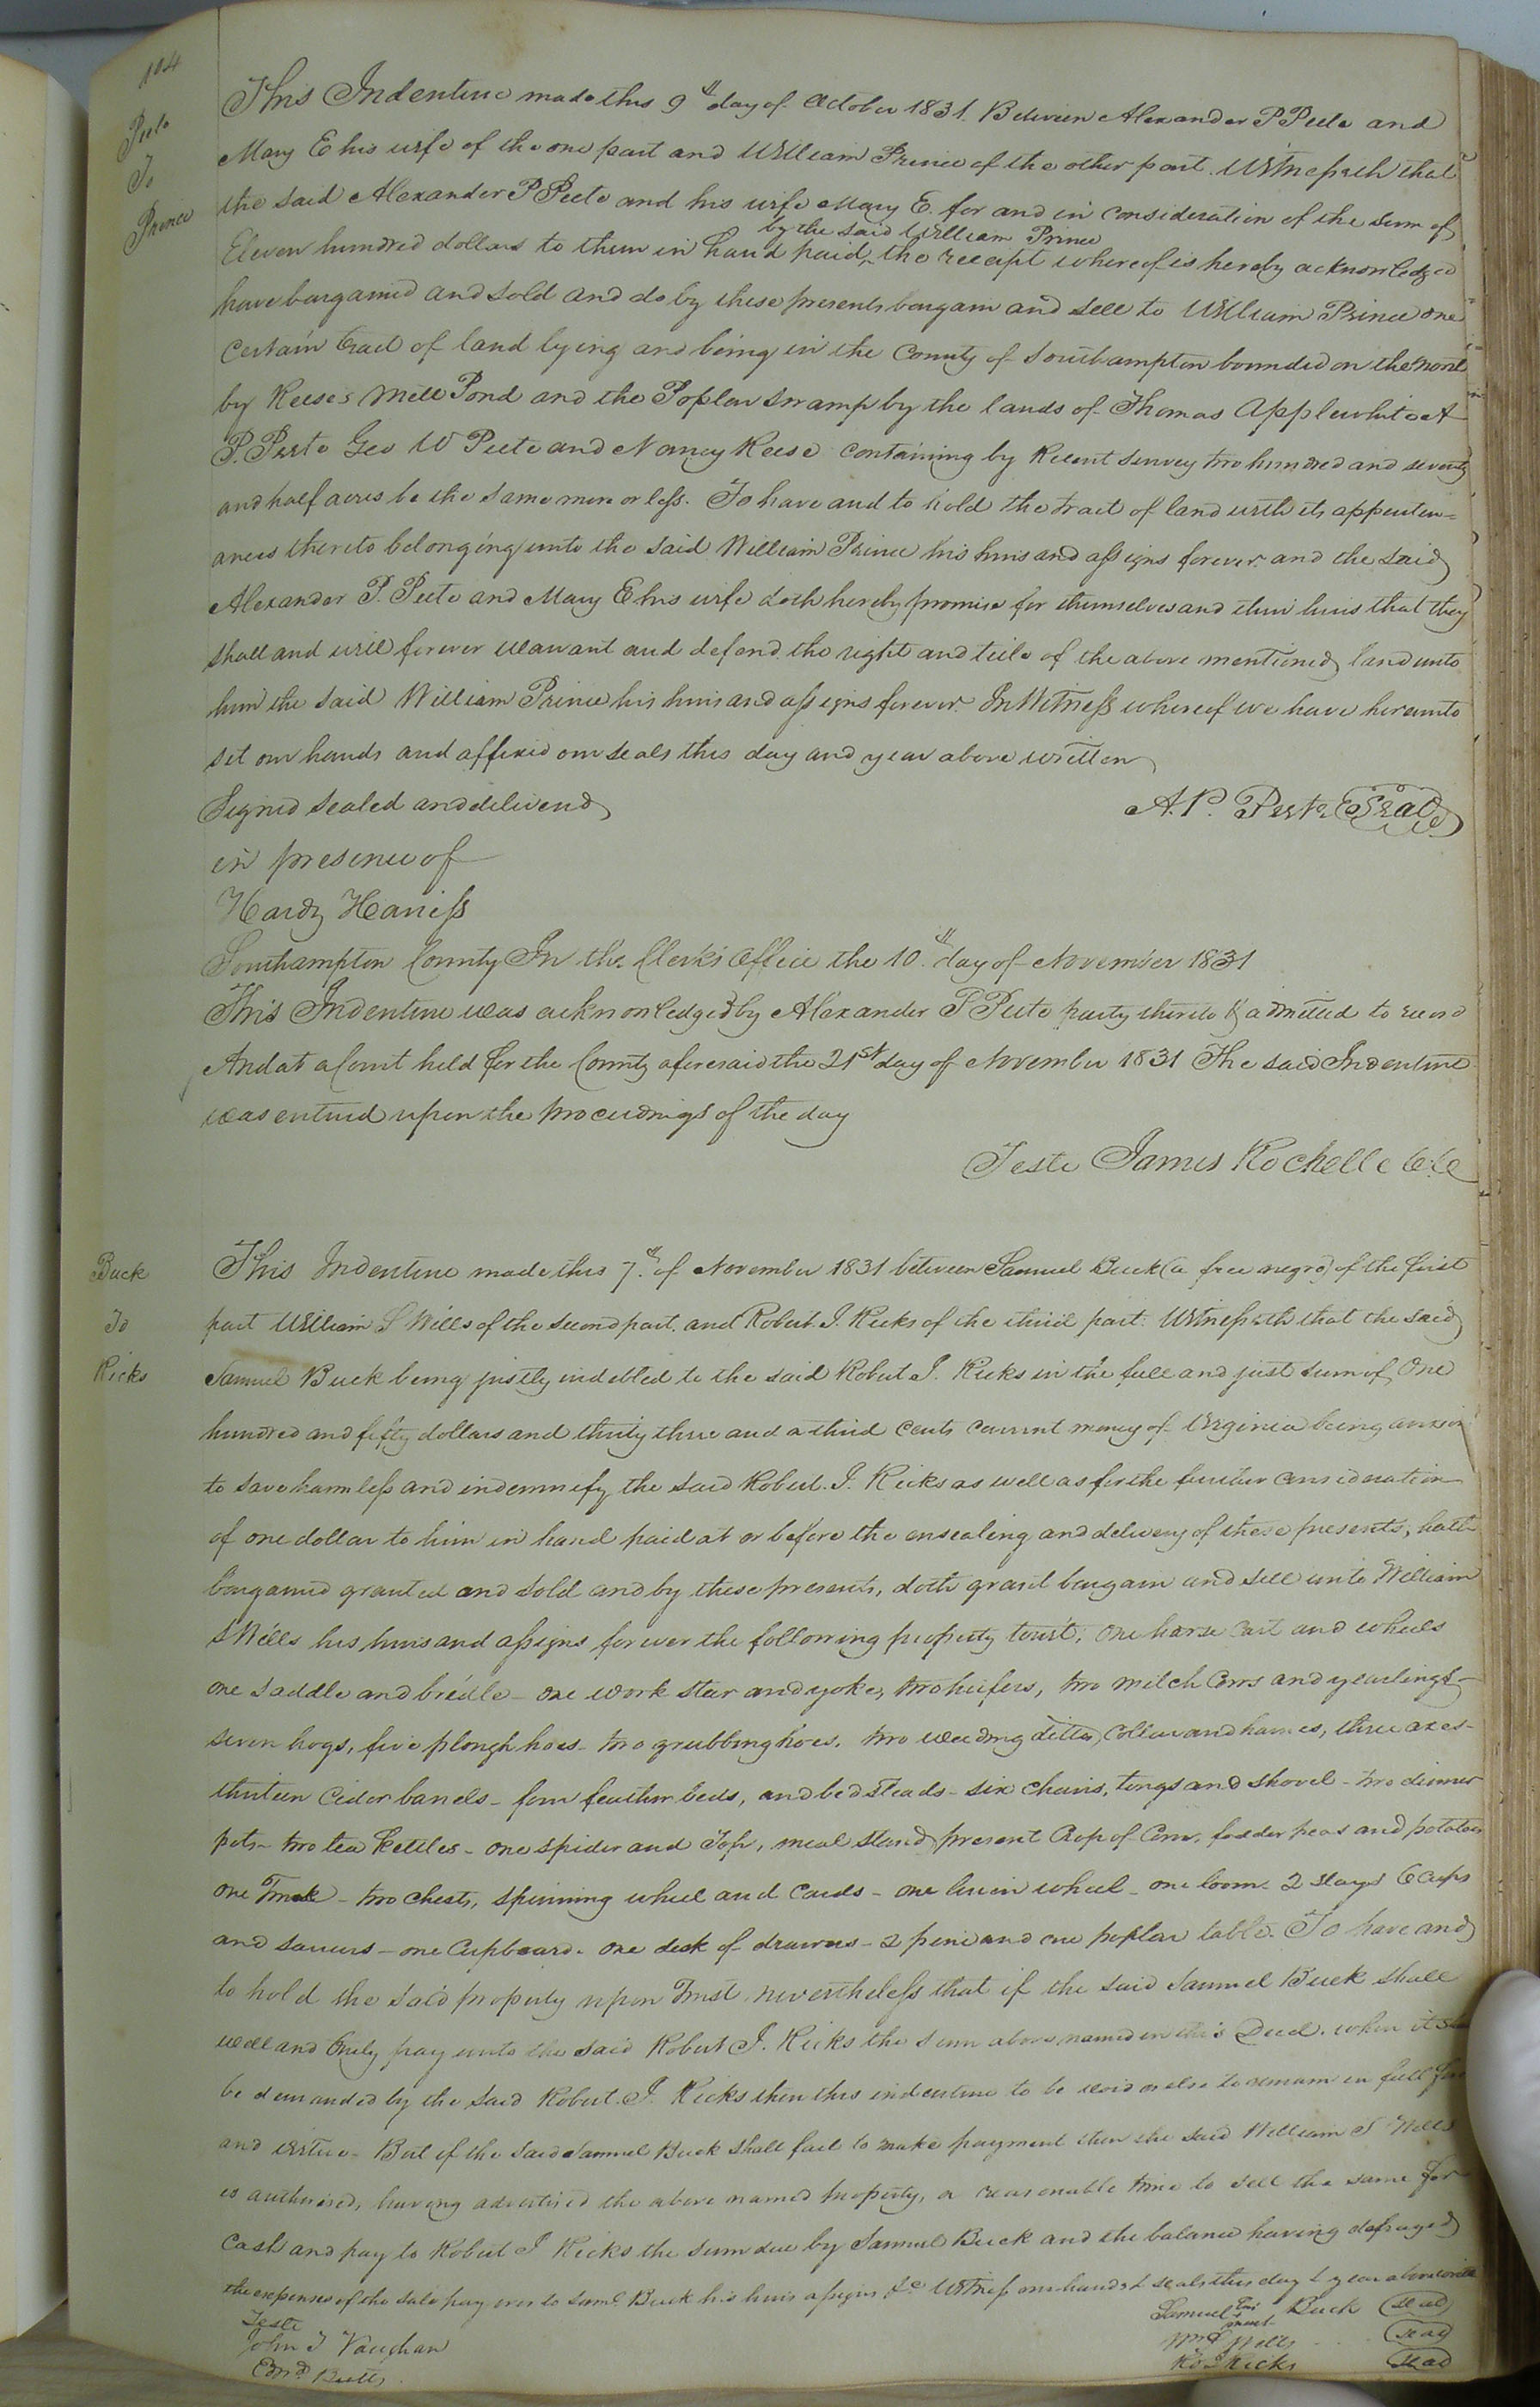 104
Peete
To
Prince
This Indenture made this 9th day of October 1831. Between Alexander P Peete and
Mary E his wife of the one part and William Prince of the other part. Witnesseth that
the said Alexander P Peete and his wife Mary E. for and in consideration of the sum of
by the said William Prince
Eleven hundred dollars to them in hand paid, the receipt whereof is hereby acknowledged
have bargained and sold and do by these presents bargain and sell to William Prince one
certain tract of land lying and being in the County of Southampton bounded on the North
by Reese's Mill Pond and the Poplar Swamp by the lands of Thomas Applewhite A
P. Peete Geo W Peete and Nancy Reese containing by Recent Survey two hundred and seventy
and half acres be the same more or less. To have and to hold the tract of land with its appurten=
ances thereto belonging unto the said William Prince his heirs and assigns forever and the said
Alexander P. Peete and Mary E his wife doth hereby promise for themselves and their heirs that they
shall and will forever warrant and defend the right and title of the above mentioned land unto
him the said William Prince his heirs and assigns forever. In Witness whereof we have hereunto
set our hands and affixed our seals this day and year above written
Signed sealed and delivered
A. P. Peete Seal
in presence of
Hardy Harriss
Southampton County In the Clerk's Office the 10th day of November 1831
This Indenture was acknowledged by Alexander P Peete party thereto & admitted to record
And at a Court held for the County aforesaid the 21st day of November 1831 The said Indenture
was entered upon the proceedings of the day
Teste James Rochelle C.C
Buck
To
Ricks
This Indenture made this 7th of November 1831 between Samuel Buck (a free negro) of the first
part William S Wills of the second part. and Robert. J. Ricks of the third part: Witnesseth that the said
Samuel Buck being justly indebted to the said Robert J. Ricks in the full and just sum of One
hundred and fifty dollars and thirty three and a third cents current money of Virginia being anxious
to save harmless and indemnify the said Robert. J. Ricks as well as for the further consideration
of one dollar to him in hand paid at or before the ensealing and delivery of these presents, hath
bargained granted and sold and by these presents, doth grant bargain and sell unto William
S Wills his heirs and assigns forever the following property towit; One horse Cart and wheels
one saddle and bridle - one work steer and yoke, two heifers, two milch Cows and yearlings -
seven hogs, five plough hoes - two grubbing hoes. two weeding ditto, Collar and hames, three axes -
thirteen Cider barrels - four feather beds, and bedsteads - six chairs, tongs and shovel - two dinner
pots - two tea kettles - one spider and Top, meal stand, present Crop of Corn, fodder peas and potatoes
one Trunk - two chests, spinning wheel and cards - one linen wheel - one loom. 2 slays 6 cups
and saucers - one Cupboard. one desk of drawers - 2 pine and one poplar table. To have and
to hold the said property upon Trust nevertheless that if the said Samuel Buck shall
well and truly pay unto the said Robert J. Ricks the sum above named in this Deed. when it
be demanded by the said Robert. J. Ricks then this indenture to be void or else to remain in full
and virtue - But if the said Samuel Buck shall fail to make payment then the said William S Wills
is authorised, having advertised the above named property, a reasonable time to sell the same for
Cash and pay to Robert J Ricks the sum due by Samuel Buck and the balance having defrayed
the expenses of the sale pay over to Saml Buck his heirs assigns &c Witness our hands & seals this day & year above
Teste
John T Vaughan
Edmd Butts
Samuel his mark Buck seal
Wm S Wills seal
Ro J Ricks seal